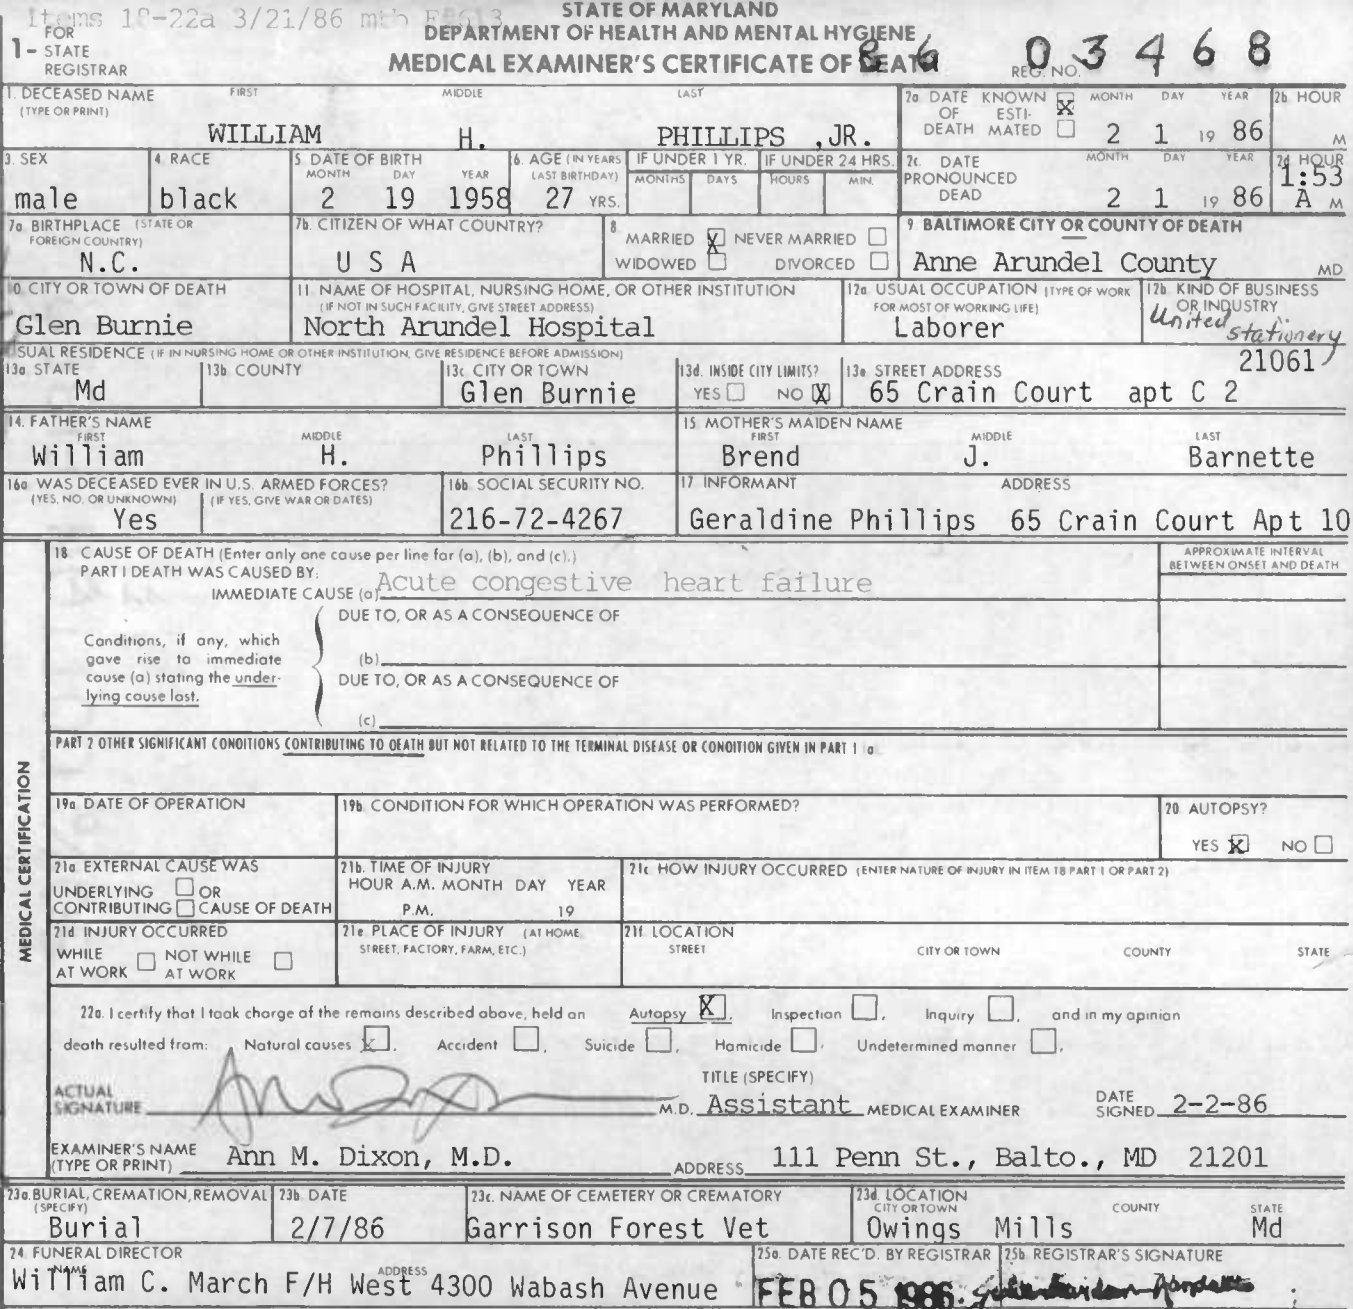 Items 18-22a 3/21/86 mtb F#613
STATE OF MARYLAND
DEPARTMENT OF HEALTH AND MENTAL HYGIENE
MEDICAL EXAMINER'S CERTIFICATE OF DEATH
1- FOR STATE REGISTRAR
86 03468
REG. NO.
1. DECEASED NAME (TYPE OR PRINT) FIRST MIDDLE LAST
WILLIAM H. PHILLIPS ,JR.
2a DATE OF DEATH KNOWN X ESTIMATED MONTH DAY YEAR 2b HOUR
2 1 19 86 M
3. SEX 4. RACE 5. DATE OF BIRTH MONTH DAY YEAR 6. AGE (IN YEARS LAST BIRTHDAY) IF UNDER 1 YR. MONTHS DAYS IF UNDER 24 HRS. HOURS MIN.
male black 2 19 1958 27 YRS.
2c. DATE PRONOUNCED DEAD MONTH DAY YEAR 2d HOUR
2 1 19 86 1:53 A M
7a. BIRTHPLACE (STATE OR FOREIGN COUNTRY)
N.C.
7b. CITIZEN OF WHAT COUNTRY?
U S A
8 MARRIED X NEVER MARRIED
WIDOWED DIVORCED
9. BALTIMORE CITY OR COUNTY OF DEATH
Anne Arundel County MD
10. CITY OR TOWN OF DEATH
Glen Burnie
11. NAME OF HOSPITAL, NURSING HOME, OR OTHER INSTITUTION
(IF NOT IN SUCH FACILITY, GIVE STREET ADDRESS)
North Arundel Hospital
12a. USUAL OCCUPATION (TYPE OF WORK FOR MOST OF WORKING LIFE)
Laborer
12b. KIND OF BUSINESS OR INDUSTRY
United stationery
USUAL RESIDENCE (IF IN NURSING HOME OR OTHER INSTITUTION, GIVE RESIDENCE BEFORE ADMISSION)
13a STATE 13b COUNTY 13c CITY OR TOWN 13d. INSIDE CITY LIMITS? 13e STREET ADDRESS 21061
Md Glen Burnie YES NO X 65 Crain Court apt C 2
14. FATHER'S NAME FIRST MIDDLE LAST
William H. Phillips
15. MOTHER'S MAIDEN NAME FIRST MIDDLE LAST
Brend J. Barnette
16a WAS DECEASED EVER IN U.S. ARMED FORCES?
(YES, NO, OR UNKNOWN) (IF YES, GIVE WAR OR DATES)
Yes
16b SOCIAL SECURITY NO.
216-72-4267
17 INFORMANT ADDRESS
Geraldine Phillips 65 Crain Court Apt 10
MEDICAL CERTIFICATION
18 CAUSE OF DEATH (Enter only one cause per line for (a), (b), and (c).)
PART I DEATH WAS CAUSED BY:
IMMEDIATE CAUSE (a) Acute congestive heart failure
APPROXIMATE INTERVAL BETWEEN ONSET AND DEATH
DUE TO, OR AS A CONSEQUENCE OF
Conditions, if any, which
gave rise to immediate
cause (a) stating the under-
lying cause last.
(b)
DUE TO, OR AS A CONSEQUENCE OF
(c)
PART 2 OTHER SIGNIFICANT CONDITIONS CONTRIBUTING TO DEATH BUT NOT RELATED TO THE TERMINAL DISEASE OR CONDITION GIVEN IN PART 1 a
19a DATE OF OPERATION 19b CONDITION FOR WHICH OPERATION WAS PERFORMED? 20 AUTOPSY?
YES X NO
21a EXTERNAL CAUSE WAS
UNDERLYING OR
CONTRIBUTING CAUSE OF DEATH
21b. TIME OF INJURY
HOUR A.M. MONTH DAY YEAR
P.M. 19
21c HOW INJURY OCCURRED (ENTER NATURE OF INJURY IN ITEM 18 PART 1 OR PART 2)
21d INJURY OCCURRED
WHILE AT WORK NOT WHILE AT WORK
21e PLACE OF INJURY (AT HOME, STREET, FACTORY, FARM, ETC.)
21f. LOCATION STREET CITY OR TOWN COUNTY STATE
22a. I certify that I took charge of the remains described above, held an Autopsy X, Inspection , Inquiry , and in my opinion
death resulted from: Natural causes x, Accident , Suicide , Homicide , Undetermined manner ,
ACTUAL SIGNATURE M.D.
TITLE (SPECIFY)
Assistant MEDICAL EXAMINER
DATE SIGNED 2-2-86
EXAMINER'S NAME (TYPE OR PRINT) Ann M. Dixon, M.D. ADDRESS 111 Penn St., Balto., MD 21201
23a. BURIAL, CREMATION, REMOVAL (SPECIFY) 23b. DATE 23c. NAME OF CEMETERY OR CREMATORY 23d. LOCATION CITY OR TOWN COUNTY STATE
Burial 2/7/86 Garrison Forest Vet Owings Mills Md
24 FUNERAL DIRECTOR NAME ADDRESS
William C. March F/H West 4300 Wabash Avenue
25a. DATE REC'D. BY REGISTRAR
FEB 05 1986
25b. REGISTRAR'S SIGNATURE